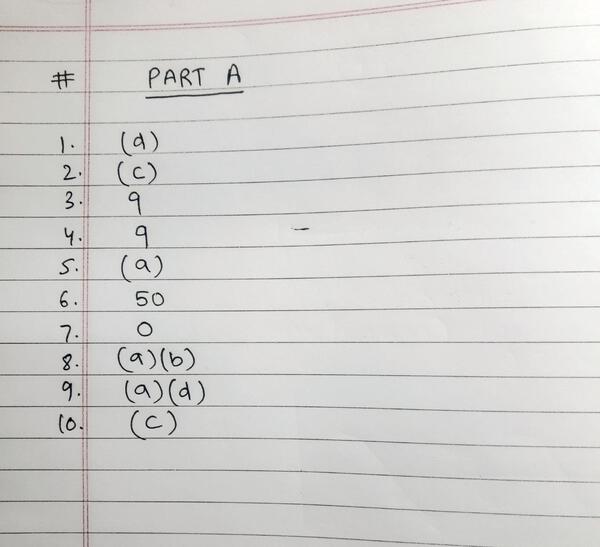 # PART A
1. (d)
2. (c)
3. 9
4. 9
5. (a)
6. 50
7. 0
8. (a)(b)
9. (a)(d)
10. (c)